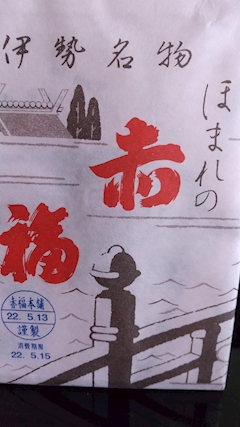 伊勢名物
ほまれの
赤福
赤福本舗
22. 5.13
謹製
消費期限
22. 5.15